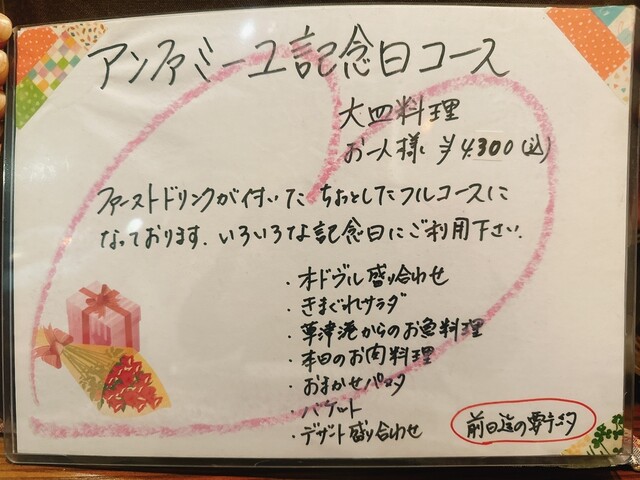 アンファミーユ記念日コース
大皿料理
お一人様 ¥4.300(込)
ファーストドリンクが付いた ちょっとしたフルコースに
なっております。いろいろな記念日にご利用下さい.
・オードヴル盛り合わせ
・きまぐれサラダ
・草津港からのお魚料理
・本日のお肉料理
・おまかせパスタ
・バケット
・デザート盛り合わせ
前日迄の要予約